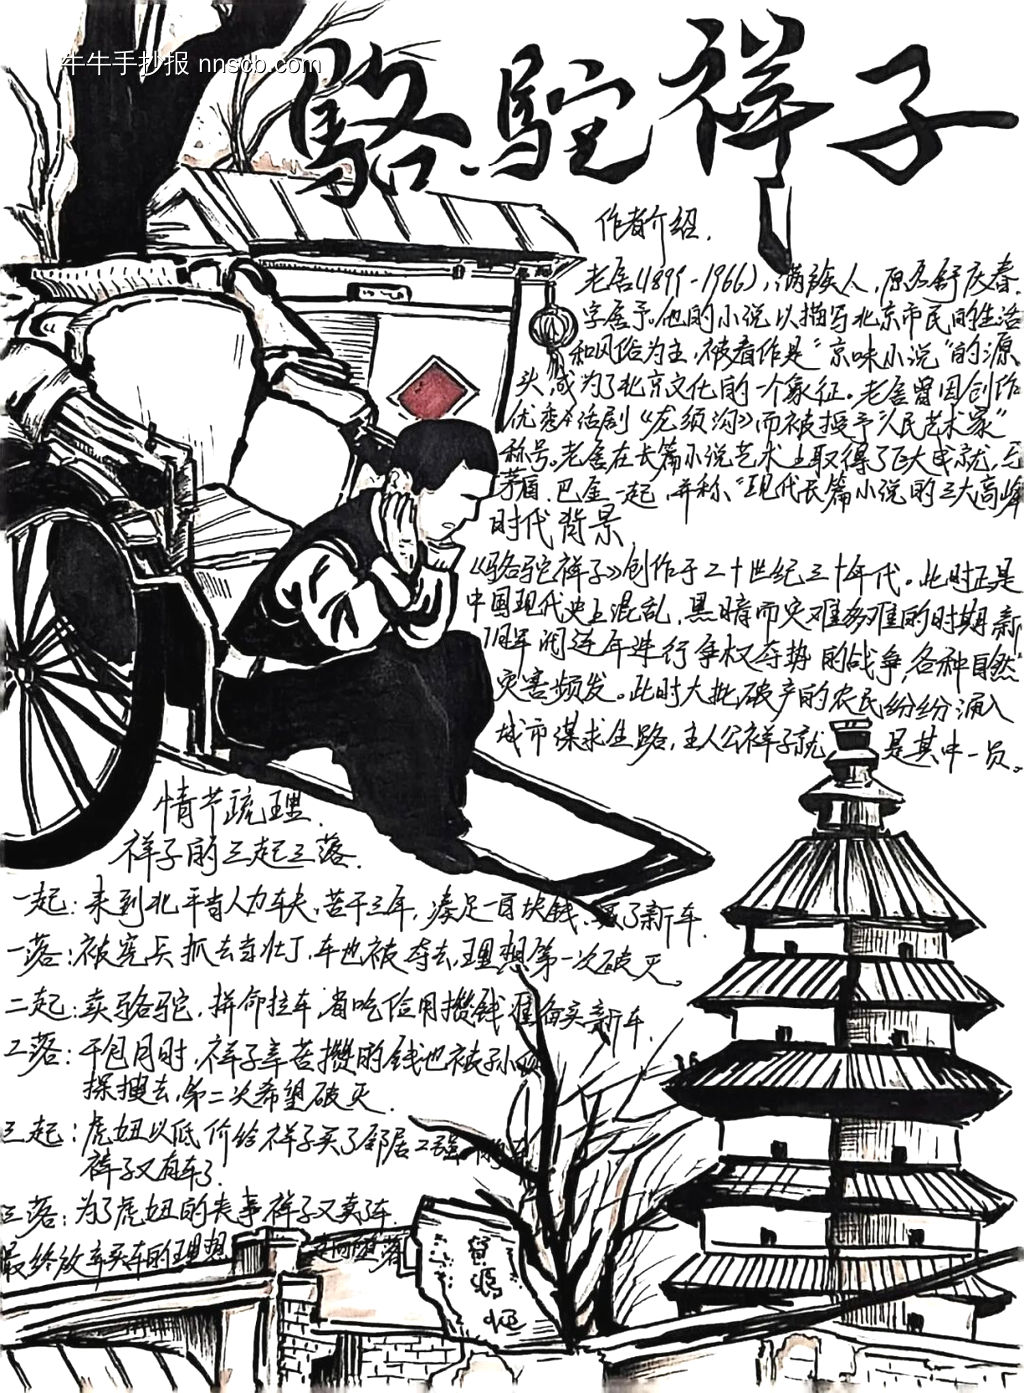 牛牛手抄报 nnscb.com
骆驼祥子
作者介绍.
老舍(1899-1966),满族人,原名舒庆春,
字舍予。他的小说以描写北京市民的生活
和风俗为主,被看作是“京味小说”的源
头,成为了北京文化的一个象征。老舍曾因创作
优秀话剧《龙须沟》而被授予“人民艺术家”
称号。老舍在长篇小说艺术上取得了巨大成就,与
茅盾、巴金一起,并称“现代长篇小说的三大高峰
时代背景.
《骆驼祥子》创作于二十世纪三十年代。此时正是
中国现代史上混乱,黑暗而灾难多难的时期,新
旧军阀连年进行争权夺势的战争,各种自然
灾害频发。此时大批破产的农民纷纷涌入
城市谋求生路,主人公祥子就是其中一员。
情节疏理.
祥子的三起三落.
一起:来到北平当人力车夫,苦干三年,凑足一百块钱,买了新车.
一落:被宪兵抓去当壮丁,车也被夺去,理想第一次破灭。
二起:卖骆驼,拼命拉车,省吃俭用攒钱准备买新车.
二落:干包月时,祥子辛苦攒的钱也被孙
探搜去,第二次希望破灭.
三起:虎妞以低价给祥子买了邻居二强
祥子又有车了.
三落:为了虎妞的丧事祥子又卖了车
最终放弃买车的理想